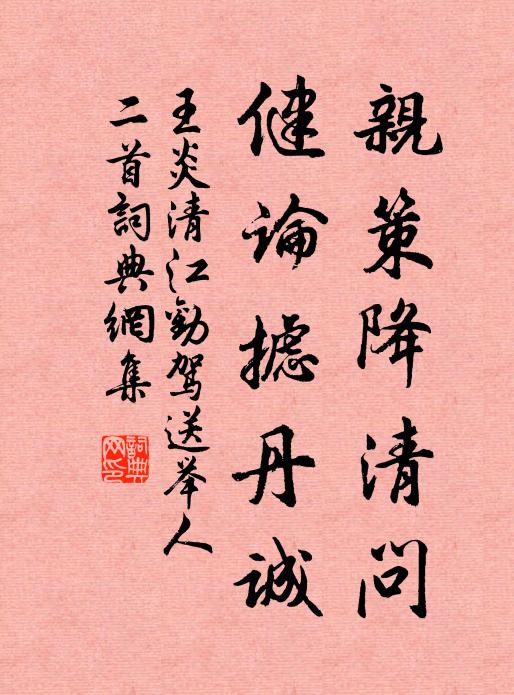 親策降清問
健論攄丹誠
王炎清江勸駕送举人
二首詞典網集
詞典網印